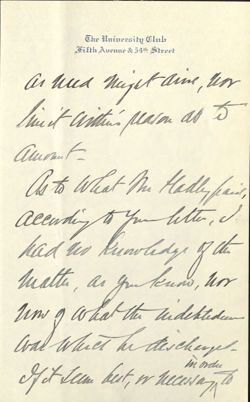 The University Club
Fifth Avenue & 54th Street
as need might arise, nor
limit within reason as to
amount-
As to what Mr Hadley paid,
according to your letter, I
had no knowledge of the
matter, as you know, nor
now of what the indebtedness
was which he discharged-
in order
If it seem best, or necessary, to